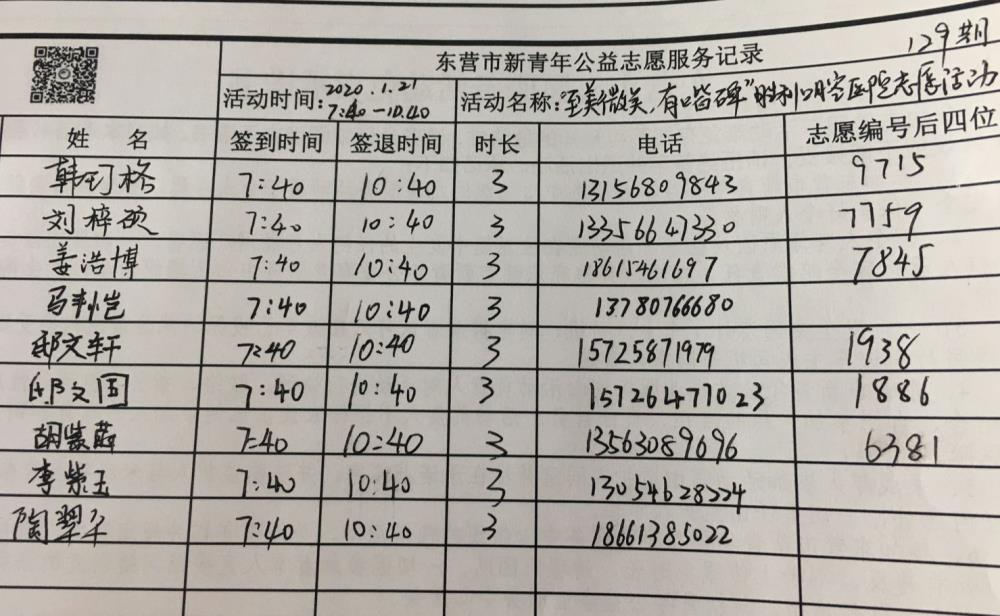 129期
东营市新青年公益志愿服务记录
活动时间:2020.1.21 7:40-10.40 活动名称:"至美微笑,有口皆碑"胜利口腔医院志愿活动
姓 名 签到时间 签退时间 时长 电话 志愿编号后四位
韩 7:40 10:40 3 13156809843 9715
刘梓硕 7:40 10:40 3 13356647330 7759
姜浩博 7:40 10:40 3 18615461697 7845
马 恺 7:40 10:40 3 13780766680
邸文轩 7:40 10:40 3 15725871979 1938
邱文国 7:40 10:40 3 15726477023 1886
胡紫茜 7:40 10:40 3 13563089696 6381
李紫玉 7:40 10:40 3 13054628324
陶翠平 7:40 10:40 3 18661385022